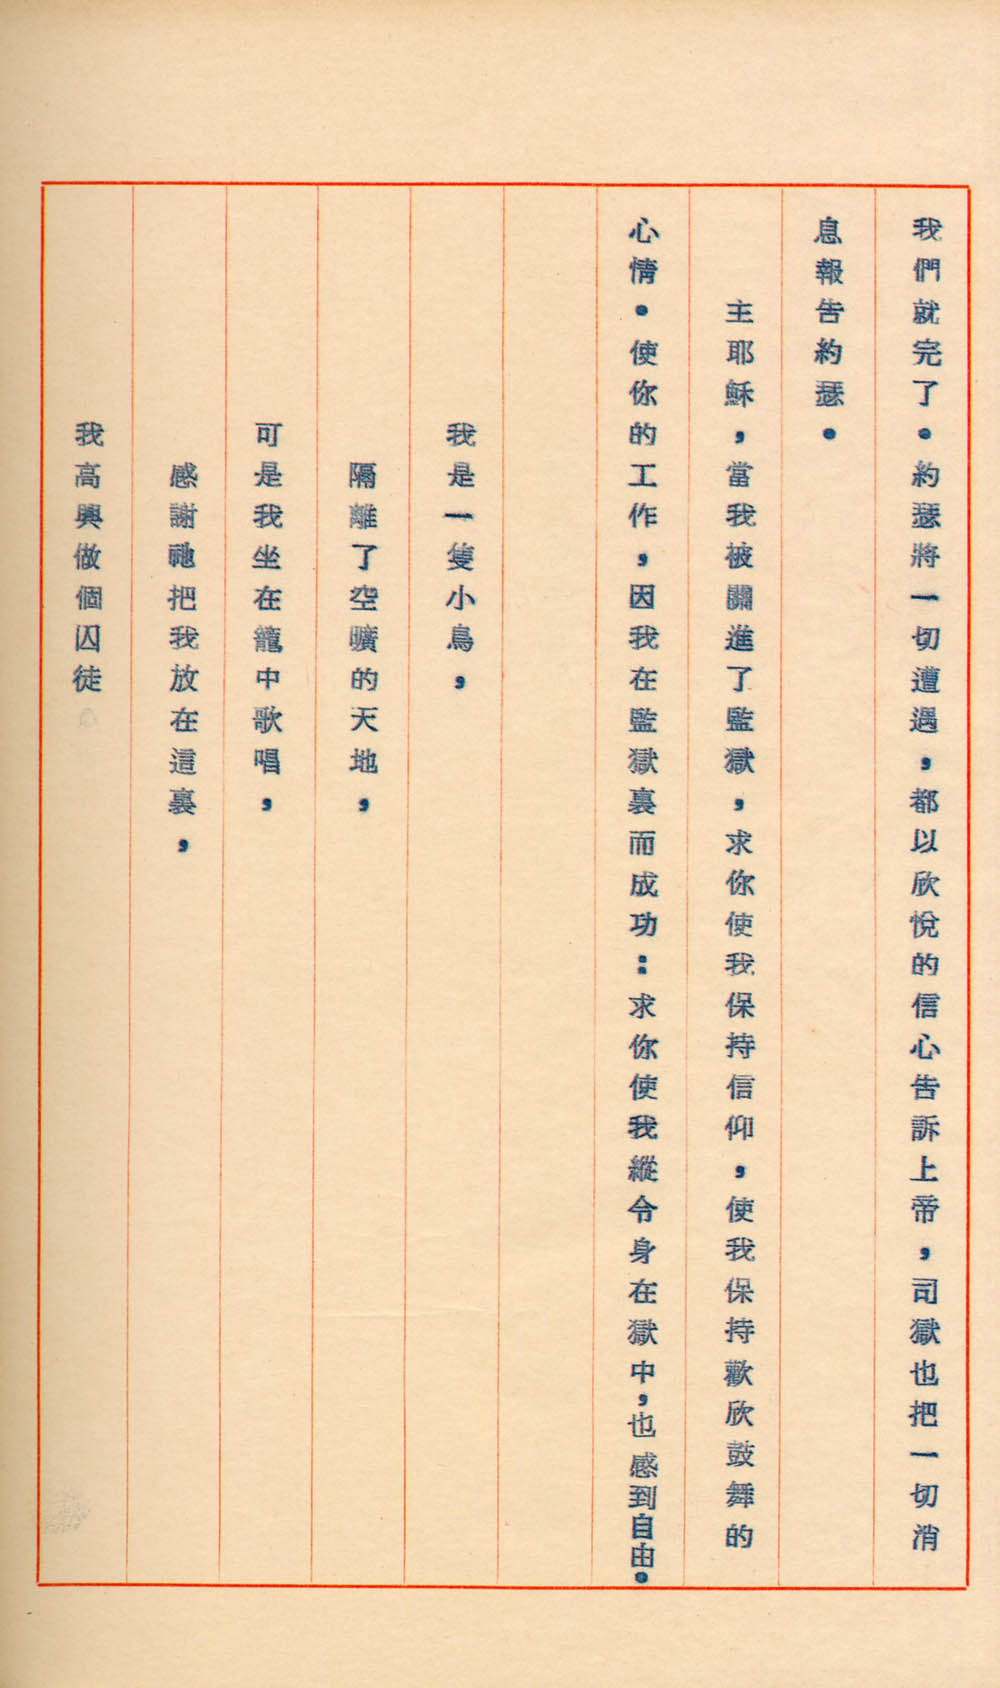 我們就完了。約瑟將一切遭遇，都以欣悅的信心告訴上帝，司獄也把一切消
息報告約瑟。
主耶穌，當我被關進了監獄，求你使我保持信仰，使我保持歡欣鼓舞的
心情。使你的工作，因我在監獄裏而成功：求你使我縱令身在獄中，也感到自由。
我是一隻小鳥，
隔離了空曠的天地，
可是我坐在籠中歌唱，
感謝祂把我放在這裏，
我高興做個囚徒